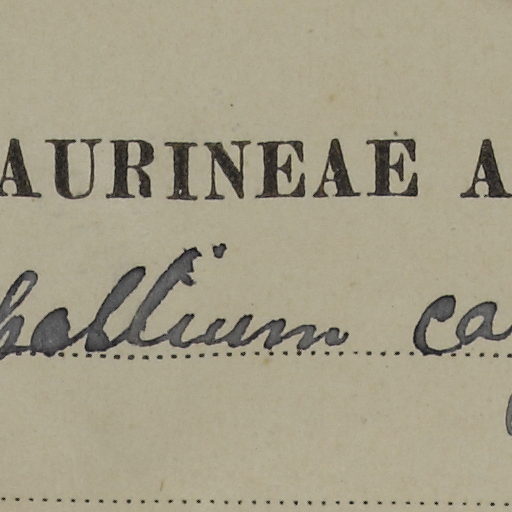 AURINEAE A
hallium ca